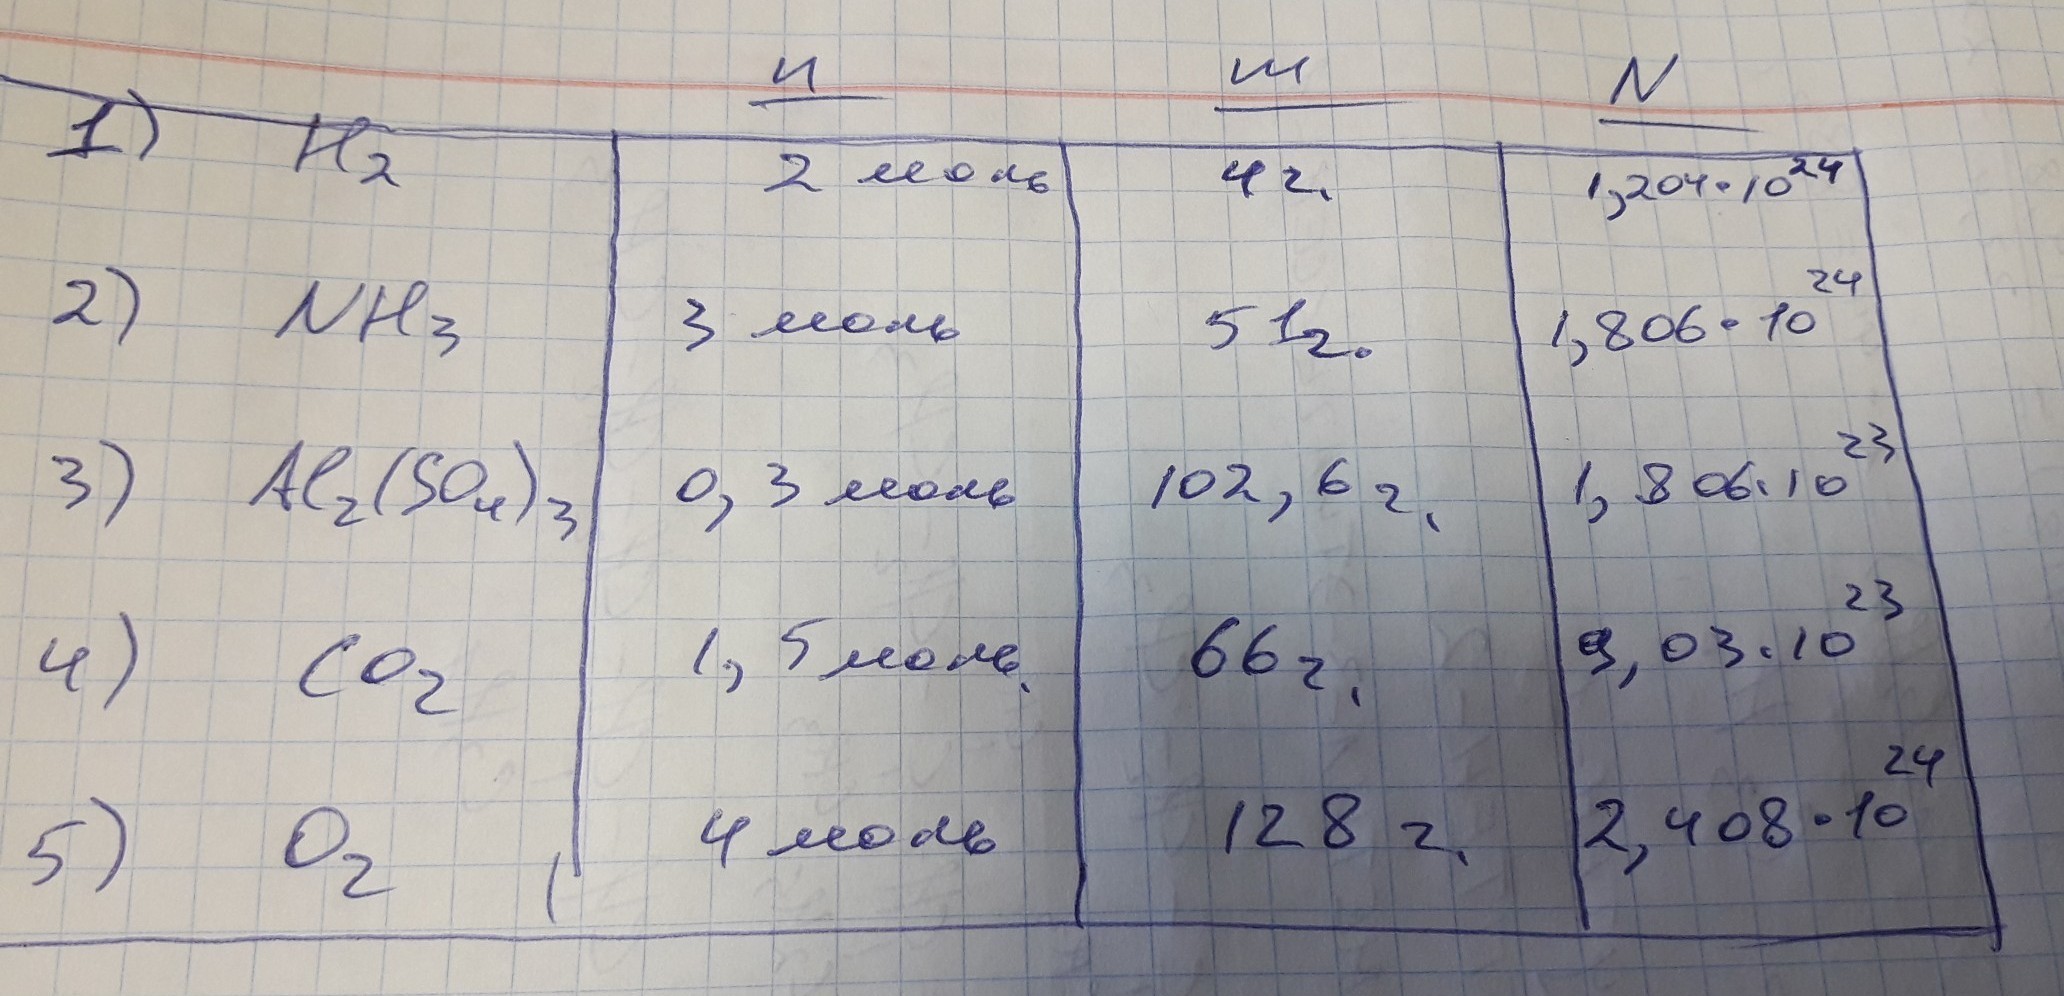 n m N
1) H₂ 2 моль 4 г. 1,204·10²⁴
2) NH₃ 3 моль 51 г. 1,806·10²⁴
3) Al₂(SO₄)₃ 0,3 моль 102,6 г. 1,806·10²³
4) CO₂ 1,5 моль. 66 г. 9,03·10²³
5) O₂ 4 моль 128 г. 2,408·10²⁴